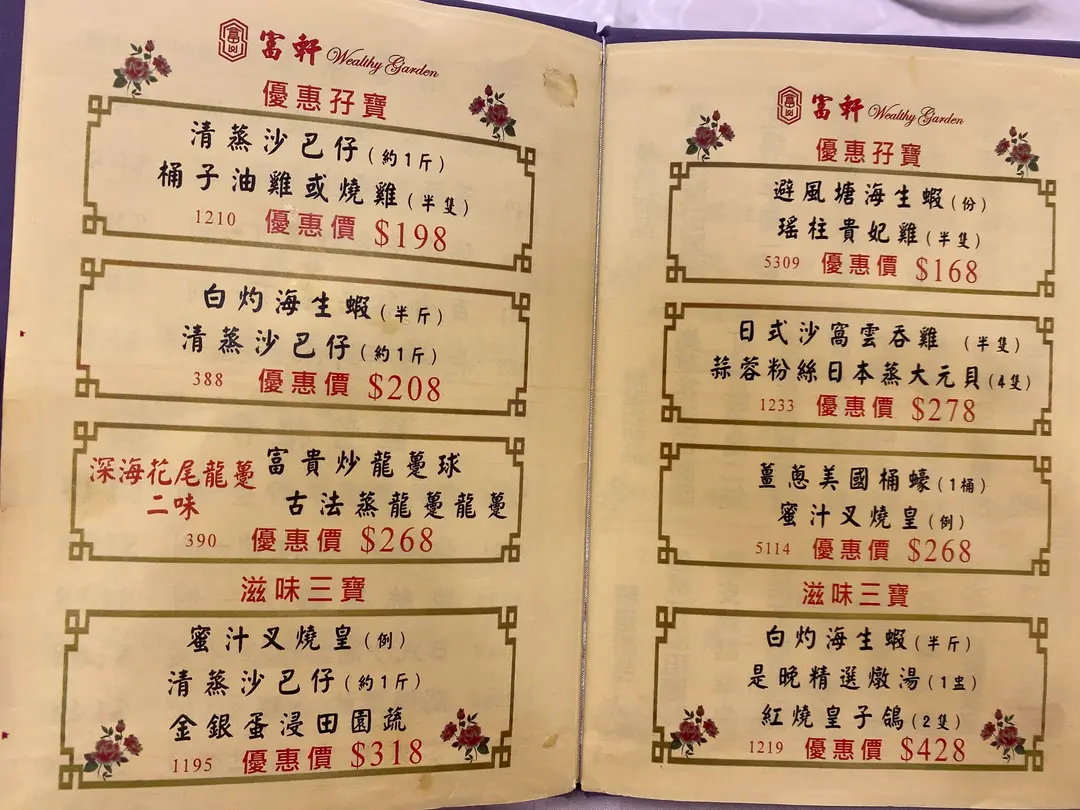 富軒 Wealthy Garden
優惠孖寶
清蒸沙巴仔(約1斤)
桶子油雞或燒雞(半隻)
1210 優惠價 $198
白灼海生蝦(半斤)
清蒸沙巴仔(約1斤)
388 優惠價 $208
深海花尾龍躉
二味
富貴炒龍躉球
古法蒸龍躉龍躉
390 優惠價 $268
滋味三寶
蜜汁叉燒皇(例)
清蒸沙巴仔(約1斤)
金銀蛋浸田園蔬
1195 優惠價 $318
富軒 Wealthy Garden
優惠孖寶
避風塘海生蝦(份)
瑤柱貴妃雞(半隻)
5309 優惠價 $168
日式沙窩雲吞雞 (半隻)
蒜蓉粉絲日本蒸大元貝(4隻)
1233 優惠價 $278
薑蔥美國桶蠔(1桶)
蜜汁叉燒皇(例)
5114 優惠價 $268
滋味三寶
白灼海生蝦(半斤)
是晚精選燉湯(1盅)
紅燒皇子鴿(2隻)
1219 優惠價 $428